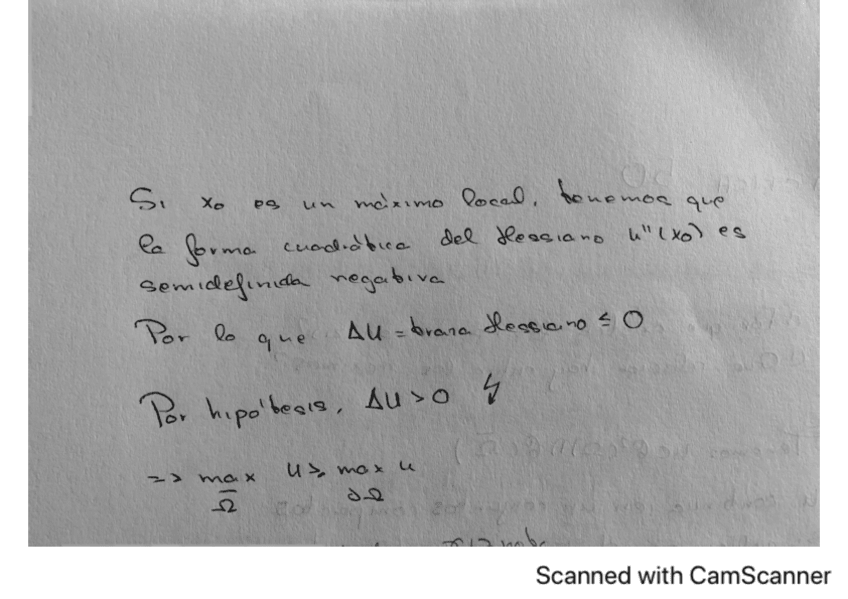 Si x₀ es un máximo local, tenemos que
la forma cuadrática del Hessiano u''(x₀) es
semidefinida negativa
Por lo que Δu = traza Hessiano ≤ 0
Por hipótesis, Δu > 0 ↯
=> max u ≥ max u
Ω̅ ∂Ω
Scanned with CamScanner